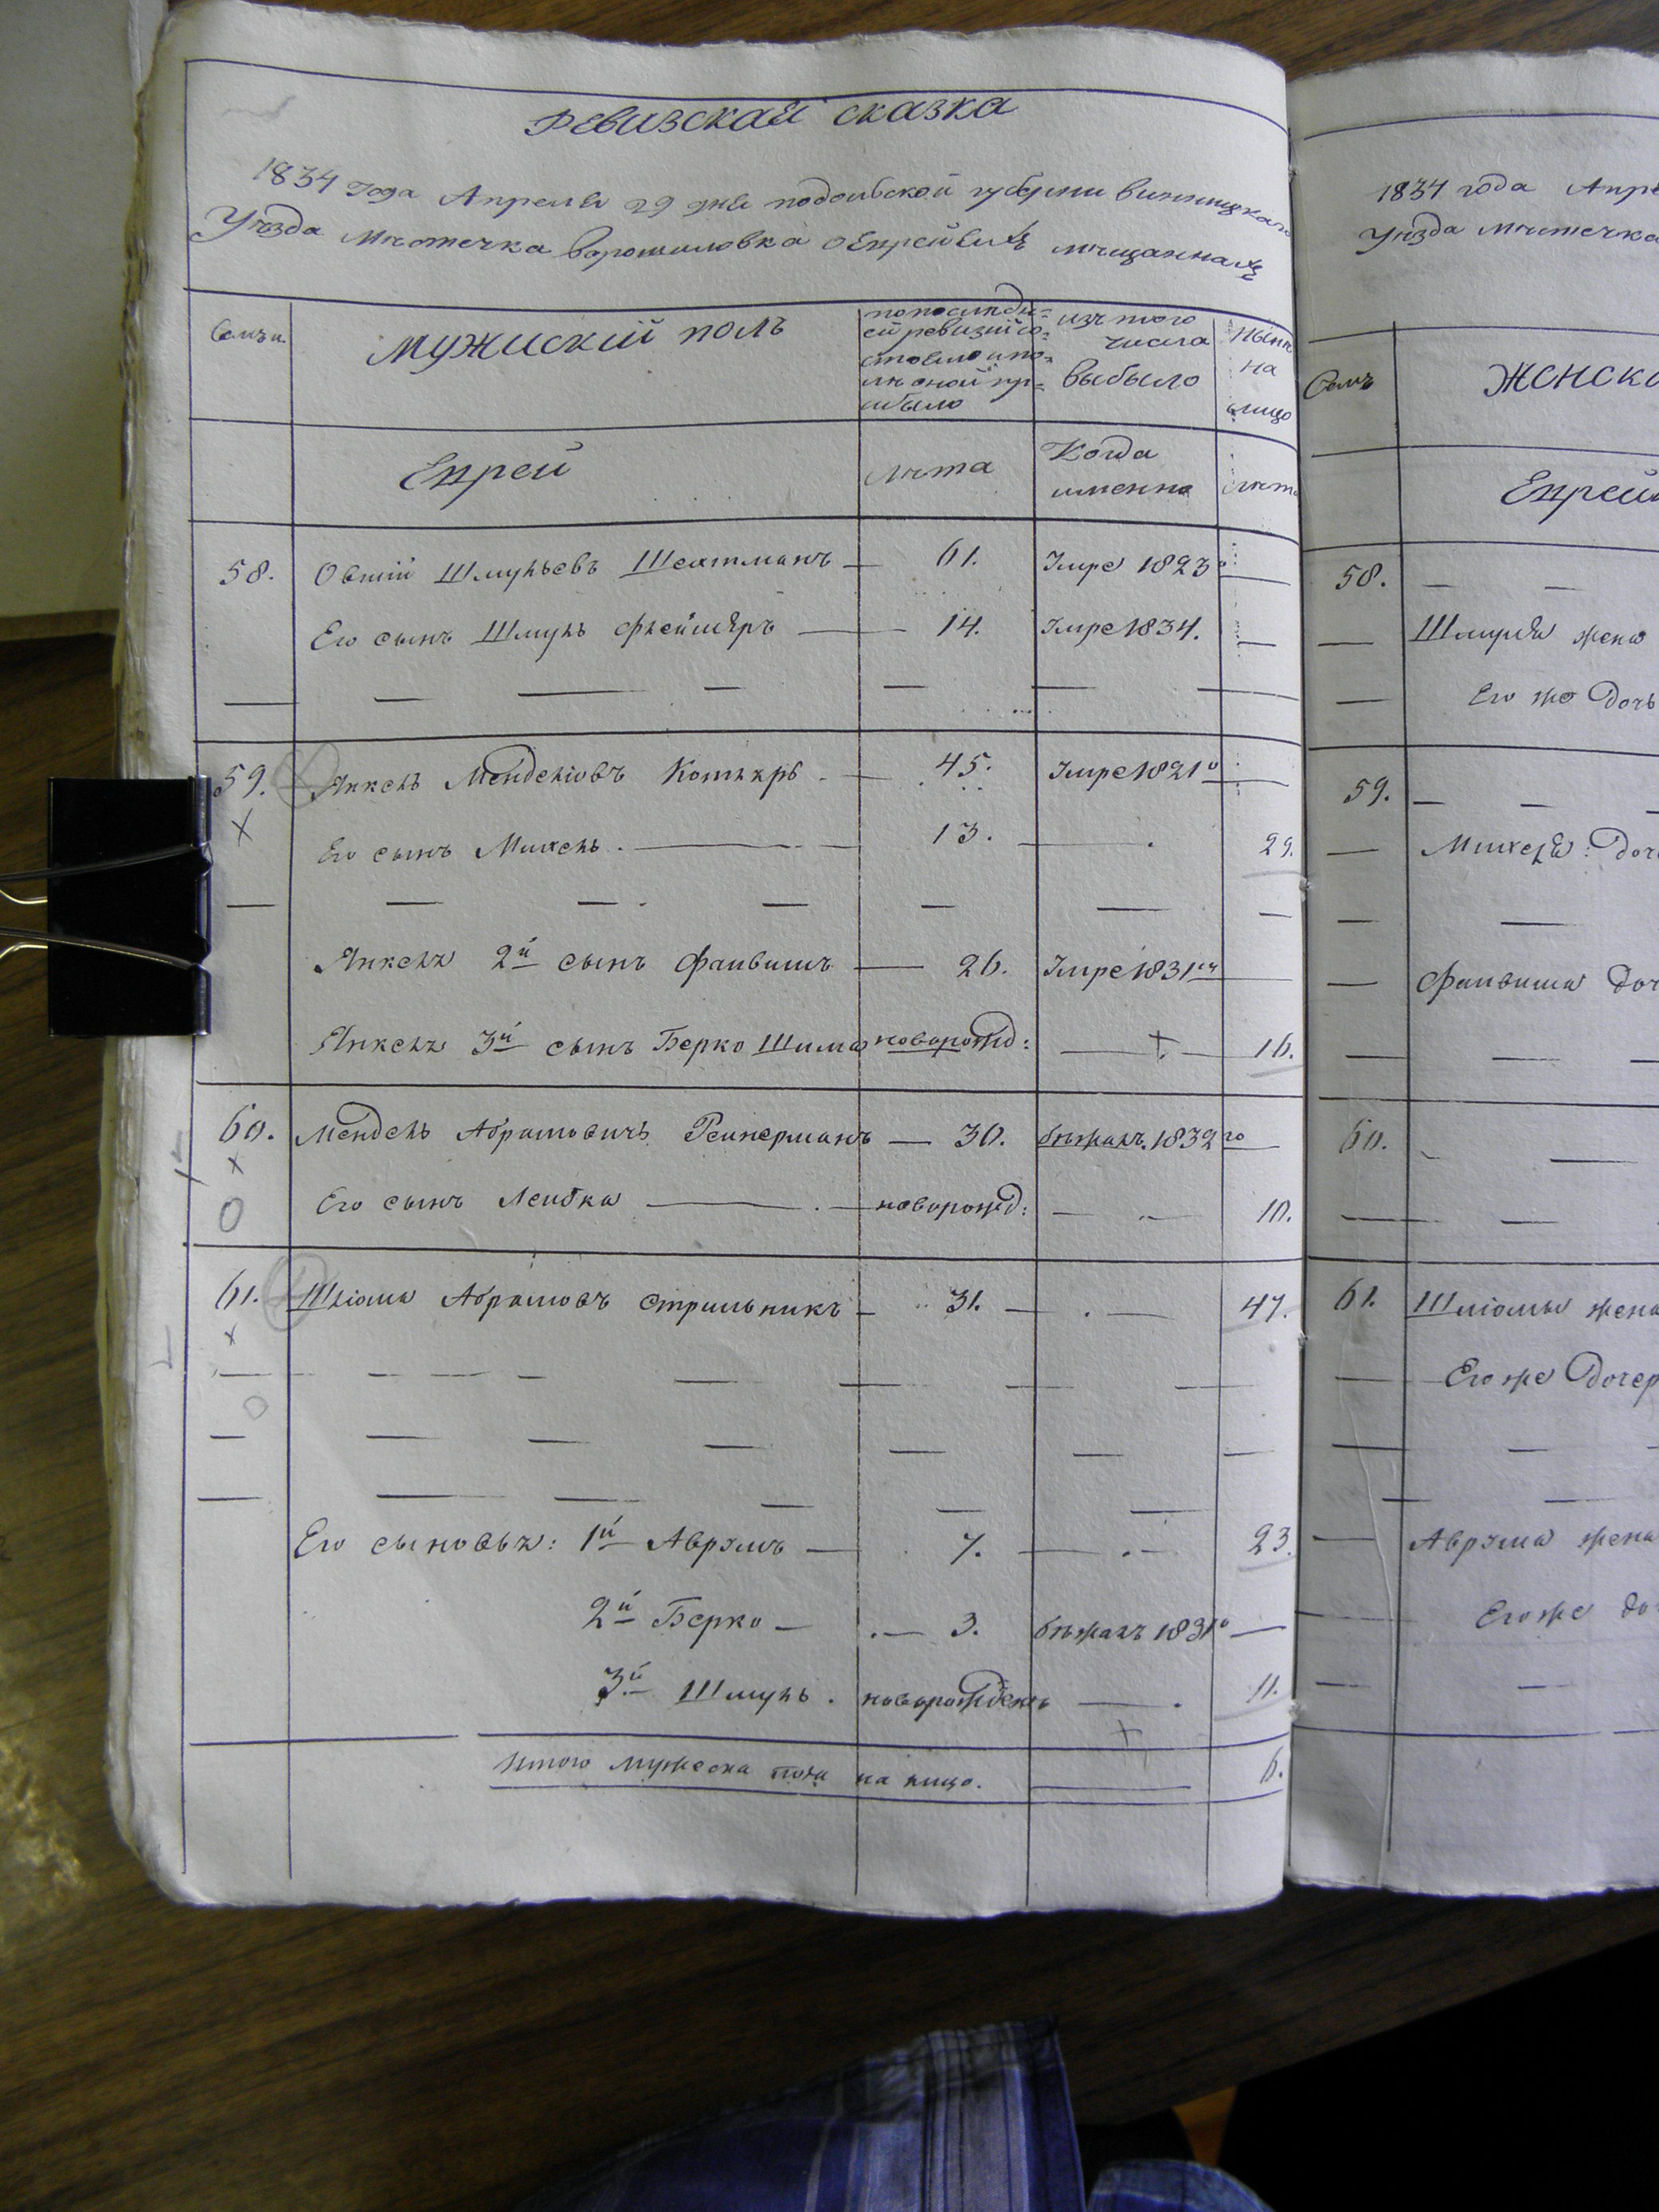 Ревизская сказка
1834 года Апреля 29 дня подольской губернии винницкаго
Уезда Местечка Ворошиловка о Еврейских мещаннах
Семьи
Мужиский поль
по последн=
ей ревизии со=
стояло и по=
ле оной пр=
ибыло
изъ того
числа
выбыло
Ныне
на
лицо
Еврей
лета
Когда
именно
лета
58. Овший Шмульевъ Шеатманъ — 61. Умре 1823о —
Его сынъ Шмуль Флейшеръ — 14. Умре 1834. —
59. Янкель Мендельовъ — 45. Умре 1821о —
Его сынъ Михель — 13. — 29.
Янкеля 2й сынъ Фаивишъ — 26. Умре 1831го —
Янкеля 3й сынъ Берко Шима новорожд: — 16.
60. Мендель Абрамовичъ — 30. бежалъ 1832го —
Его сынъ Лейбка — новорожд: — 10.
61. Шлiома Абрамовъ Стрильникъ — 31. — 47.
Его сыновья: 1й Аврумъ — 7. — 23.
2й Берко — 3. бежалъ 1831о —
3й Шмуль. новорожденъ — 11.
Итого мужеска пола на лицо. — 6.
1834 года Апре
Уезда местечка
Семь
Женско
Еврей
58. —
Шмуля жена
Его же Дочь
59. —
Михеля: Доч
Фаивиша Доч
60. —
61. Шлiомы жена
Его же Дочер
Аврума жена
Его же до